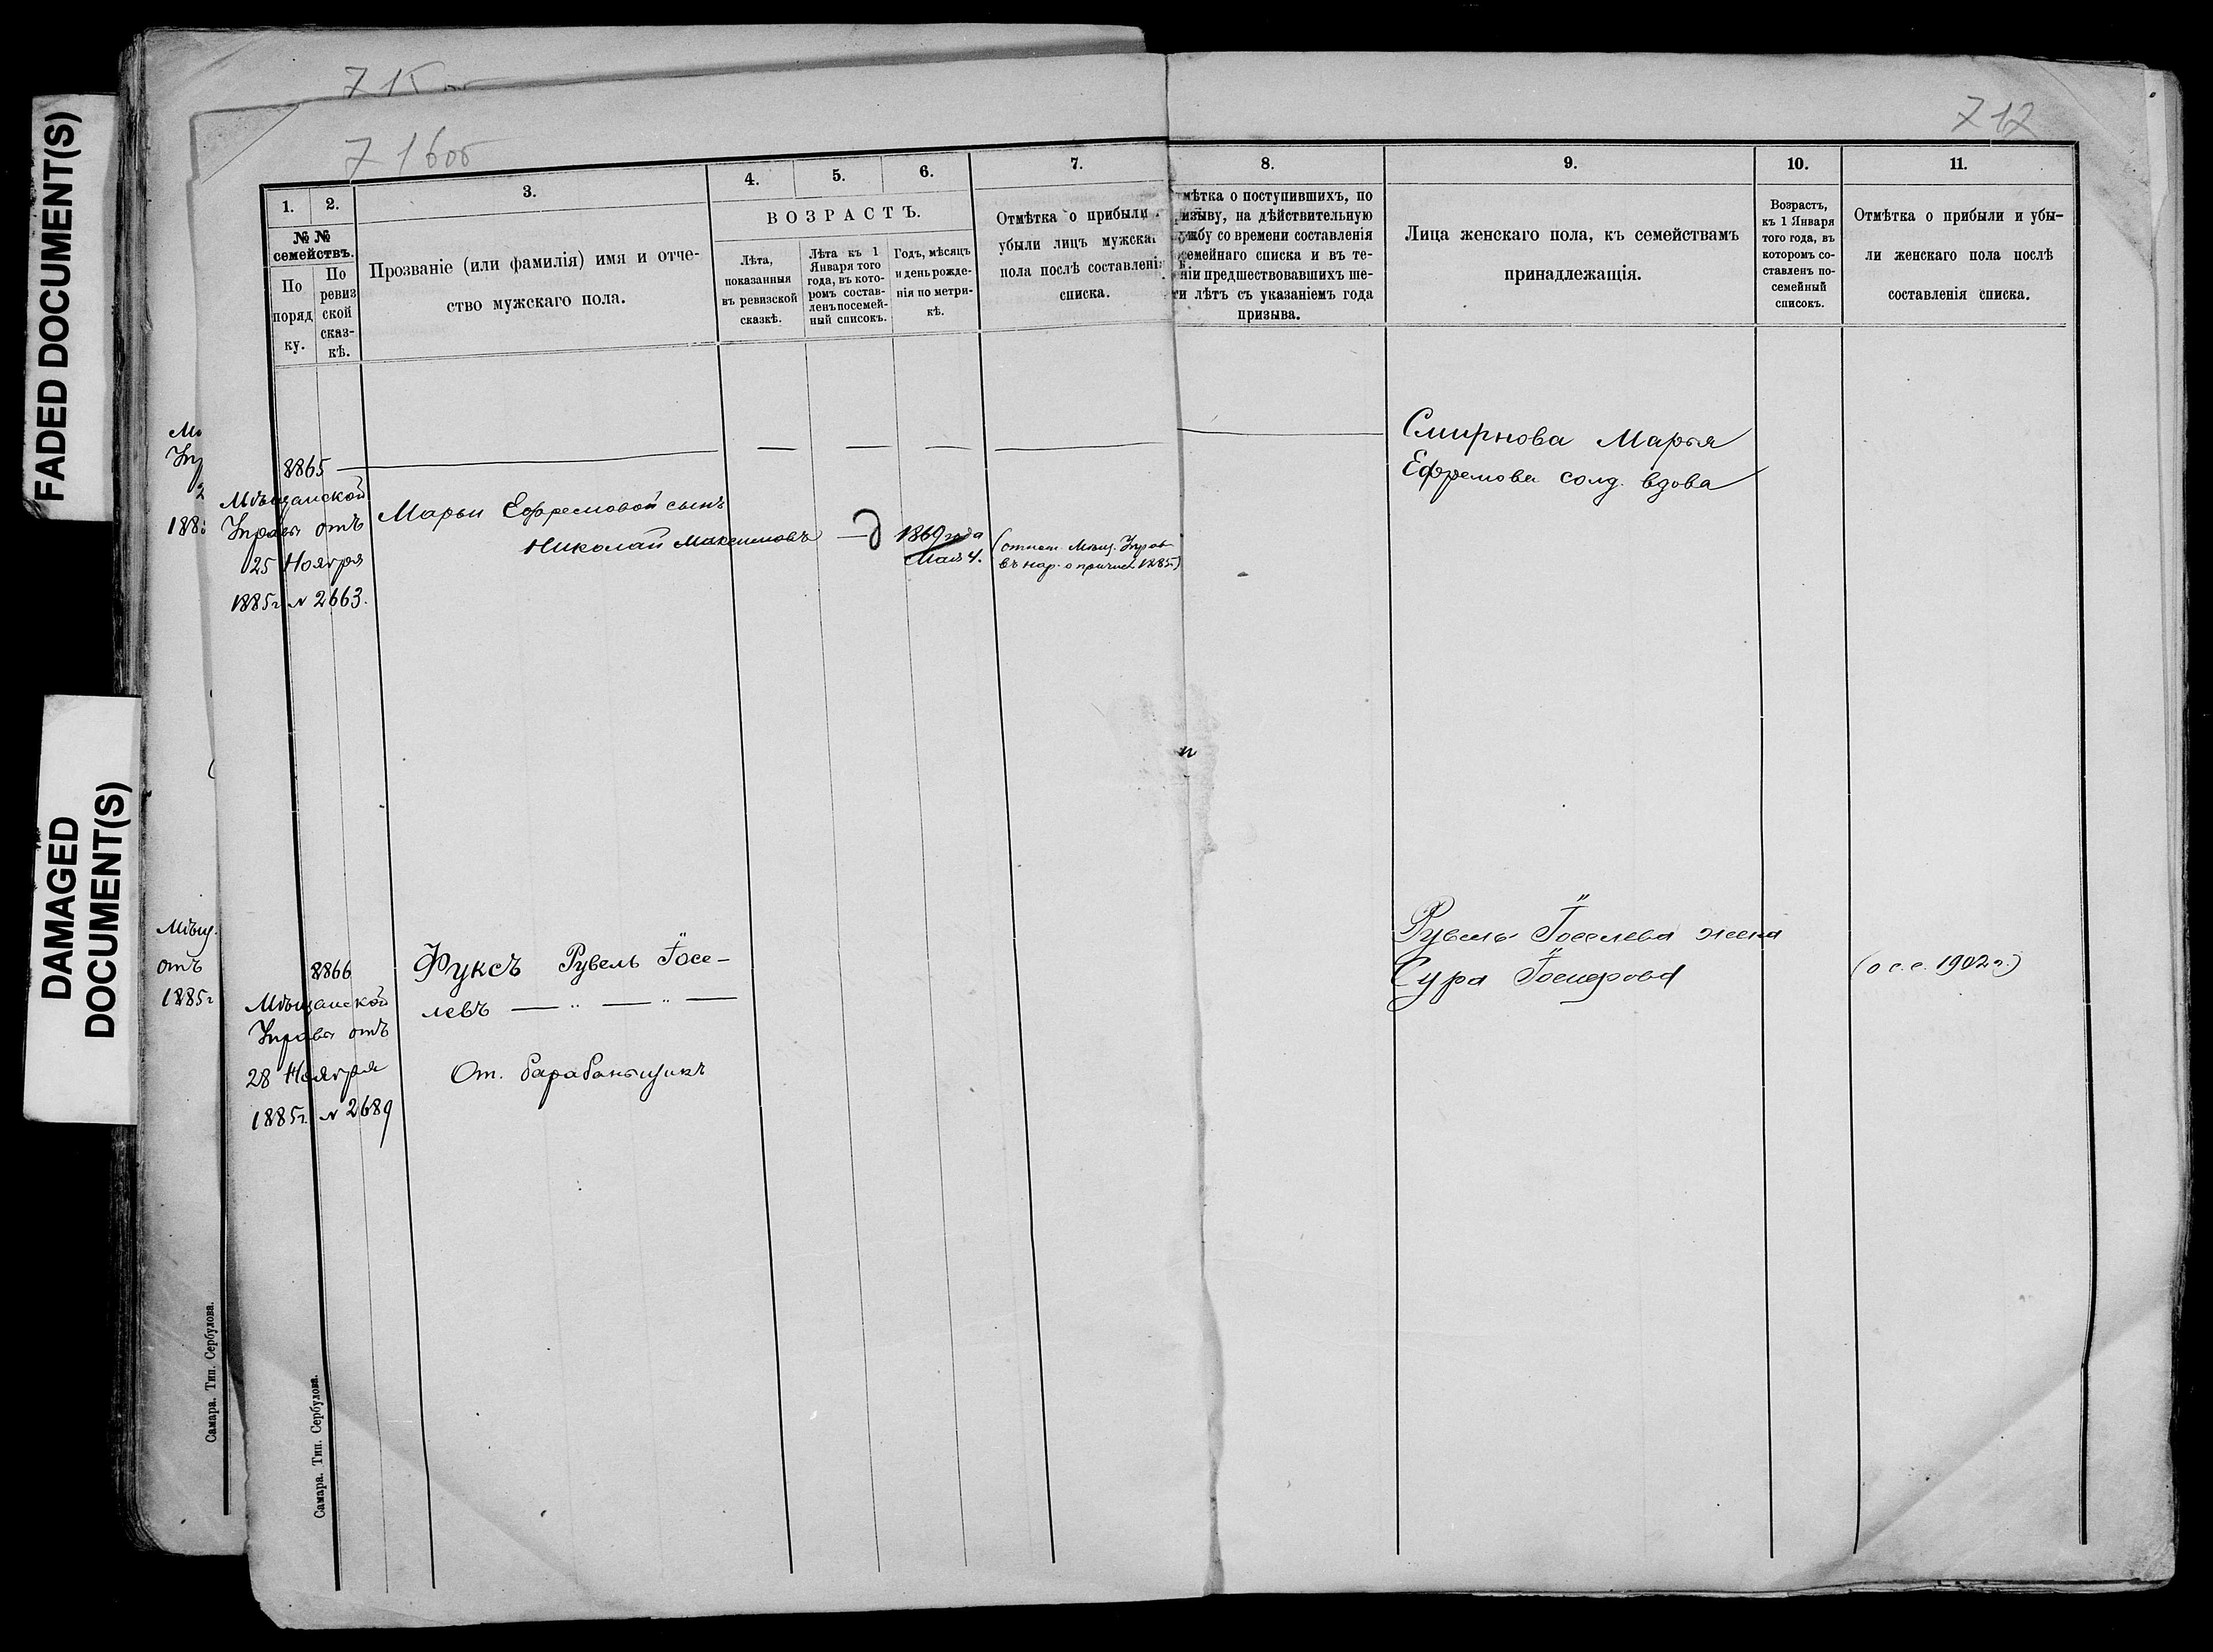 FADED DOCUMENT(S)
DAMAGED
DOCUMENT(S)
716об
717
1.
2.
3.
4.
5.
6.
7.
8.
9.
10.
11.
№ №
семействъ.
По
поряд
ку.
По
ревиз
ской
сказ-
кѣ.
Прозваніе (или фамилія) имя и отче-
ство мужскаго пола.
ВОЗРАСТЪ.
Лѣта,
показанныя
въ ревизской
сказкѣ.
Лѣта къ 1
Января того
года, въ кото-
ромъ состав-
ленъ посемей-
ный списокъ.
Годъ, мѣсяцъ
и день рожде-
нія по метри-
кѣ.
Отмѣтка о прибыли
убыли лицъ мужска
пола послѣ составлені
списка.
мѣтка о поступившихъ, по
изыву, на дѣйствительную
ужбу со времени составленія
семейнаго списка и въ те-
ніи предшествовавшихъ ше-
ти лѣтъ съ указаніемъ года
призыва.
Лица женскаго пола, къ семействамъ
принадлежащія.
Возрастъ,
къ 1 Января
того года, въ
которомъ со-
ставленъ по-
семейный
списокъ.
Отмѣтка о прибыли и убы-
ли женскаго пола послѣ
составленія списка.
8865
Мѣщанской
Управы отъ
25 Ноября
1885г. № 2663.
Марьи Ефремовой сынъ
Николай Максимовъ
1869 года
Мая 4.
Мѣщ. Управ
1885
Смирнова Марья
Ефремова солд. вдова
8866
Мѣщанской
Управы отъ
28 Ноября
1885г. № 2689
Фуксъ Рувель Іосе-
левъ
От. барабанщикъ
Рувель Іоселева жена
Сура
(о с. с. 1902 г.)
Мѣщ.
отъ
1885г
Самара. Тип. Сербулова.
Самара. Тип. Сербулова.